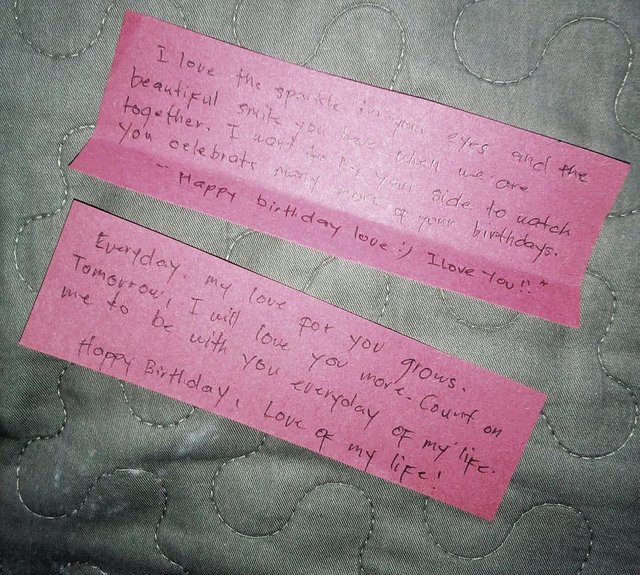 I love the sparkle in your eyes and the
beautiful smile you have when we are
together. I want to be by your side to watch
you celebrate many more of your birthdays.
~ Happy birthday love :) I love You!! ~
Everyday, my love for you grows.
Tomorrow, I will love you more. Count on
me to be with you everyday of my life.
Happy Birthday, Love of my life!